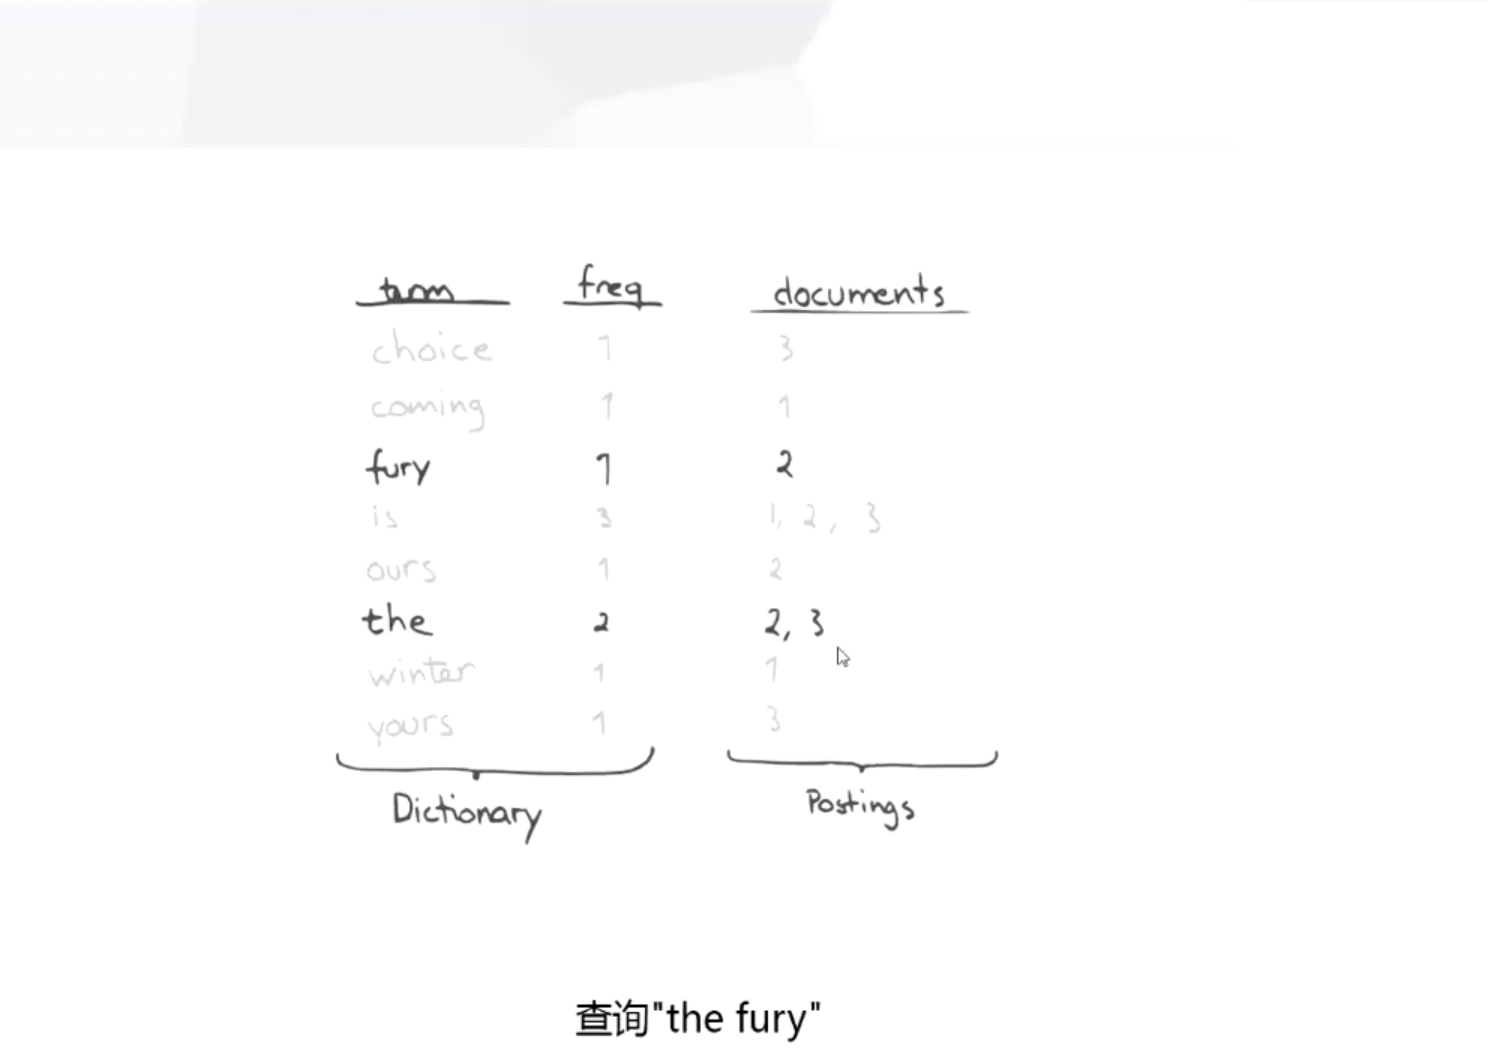 term freq documents
choice 1 3
coming 1 1
fury 1 2
is 3 1, 2, 3
ours 1 2
the 2 2, 3
winter 1 1
yours 1 3
Dictionary Postings
查询"the fury"